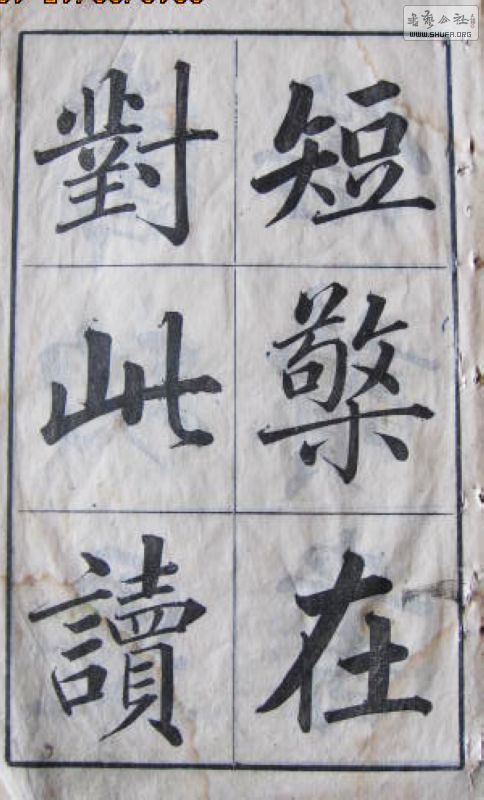 短檠在
對此讀
書藝公社
WWW.SHUFA.ORG